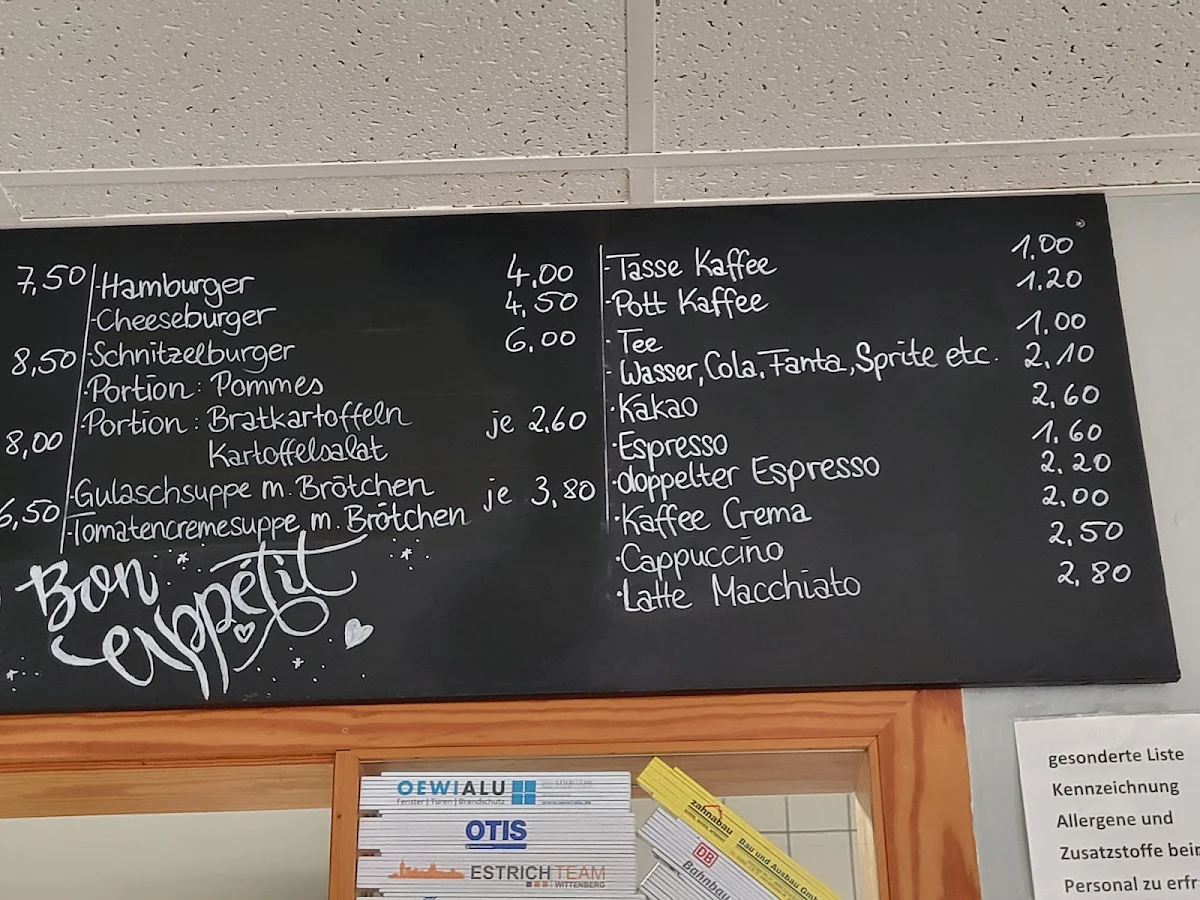 7,50
8,50
8,00
6,50
·Hamburger 4,00
·Cheeseburger 4,50
·Schnitzelburger 6,00
·Portion: Pommes
·Portion: Bratkartoffeln je 2,60
Kartoffelsalat
·Gulaschsuppe m. Brötchen je 3,80
·Tomatencremesuppe m. Brötchen
Bon
Appétit
·Tasse Kaffee 1,00
·Pott Kaffee 1,20
·Tee 1,00
·Wasser, Cola, Fanta, Sprite etc. 2,10
·Kakao 2,60
·Espresso 1,60
·doppelter Espresso 2,20
·Kaffee Crema 2,00
·Cappuccino 2,50
·Latte Macchiato 2,80
OEWIALU
Fenster | Türen | Brandschutz
OTIS
ESTRICHTEAM
WITTENBERG
zahnabau
Bau und Ausbau GmbH
DB
Bahnbau
gesonderte Liste
Kennzeichnung
Allergene und
Zusatzstoffe beim
Personal zu erfr